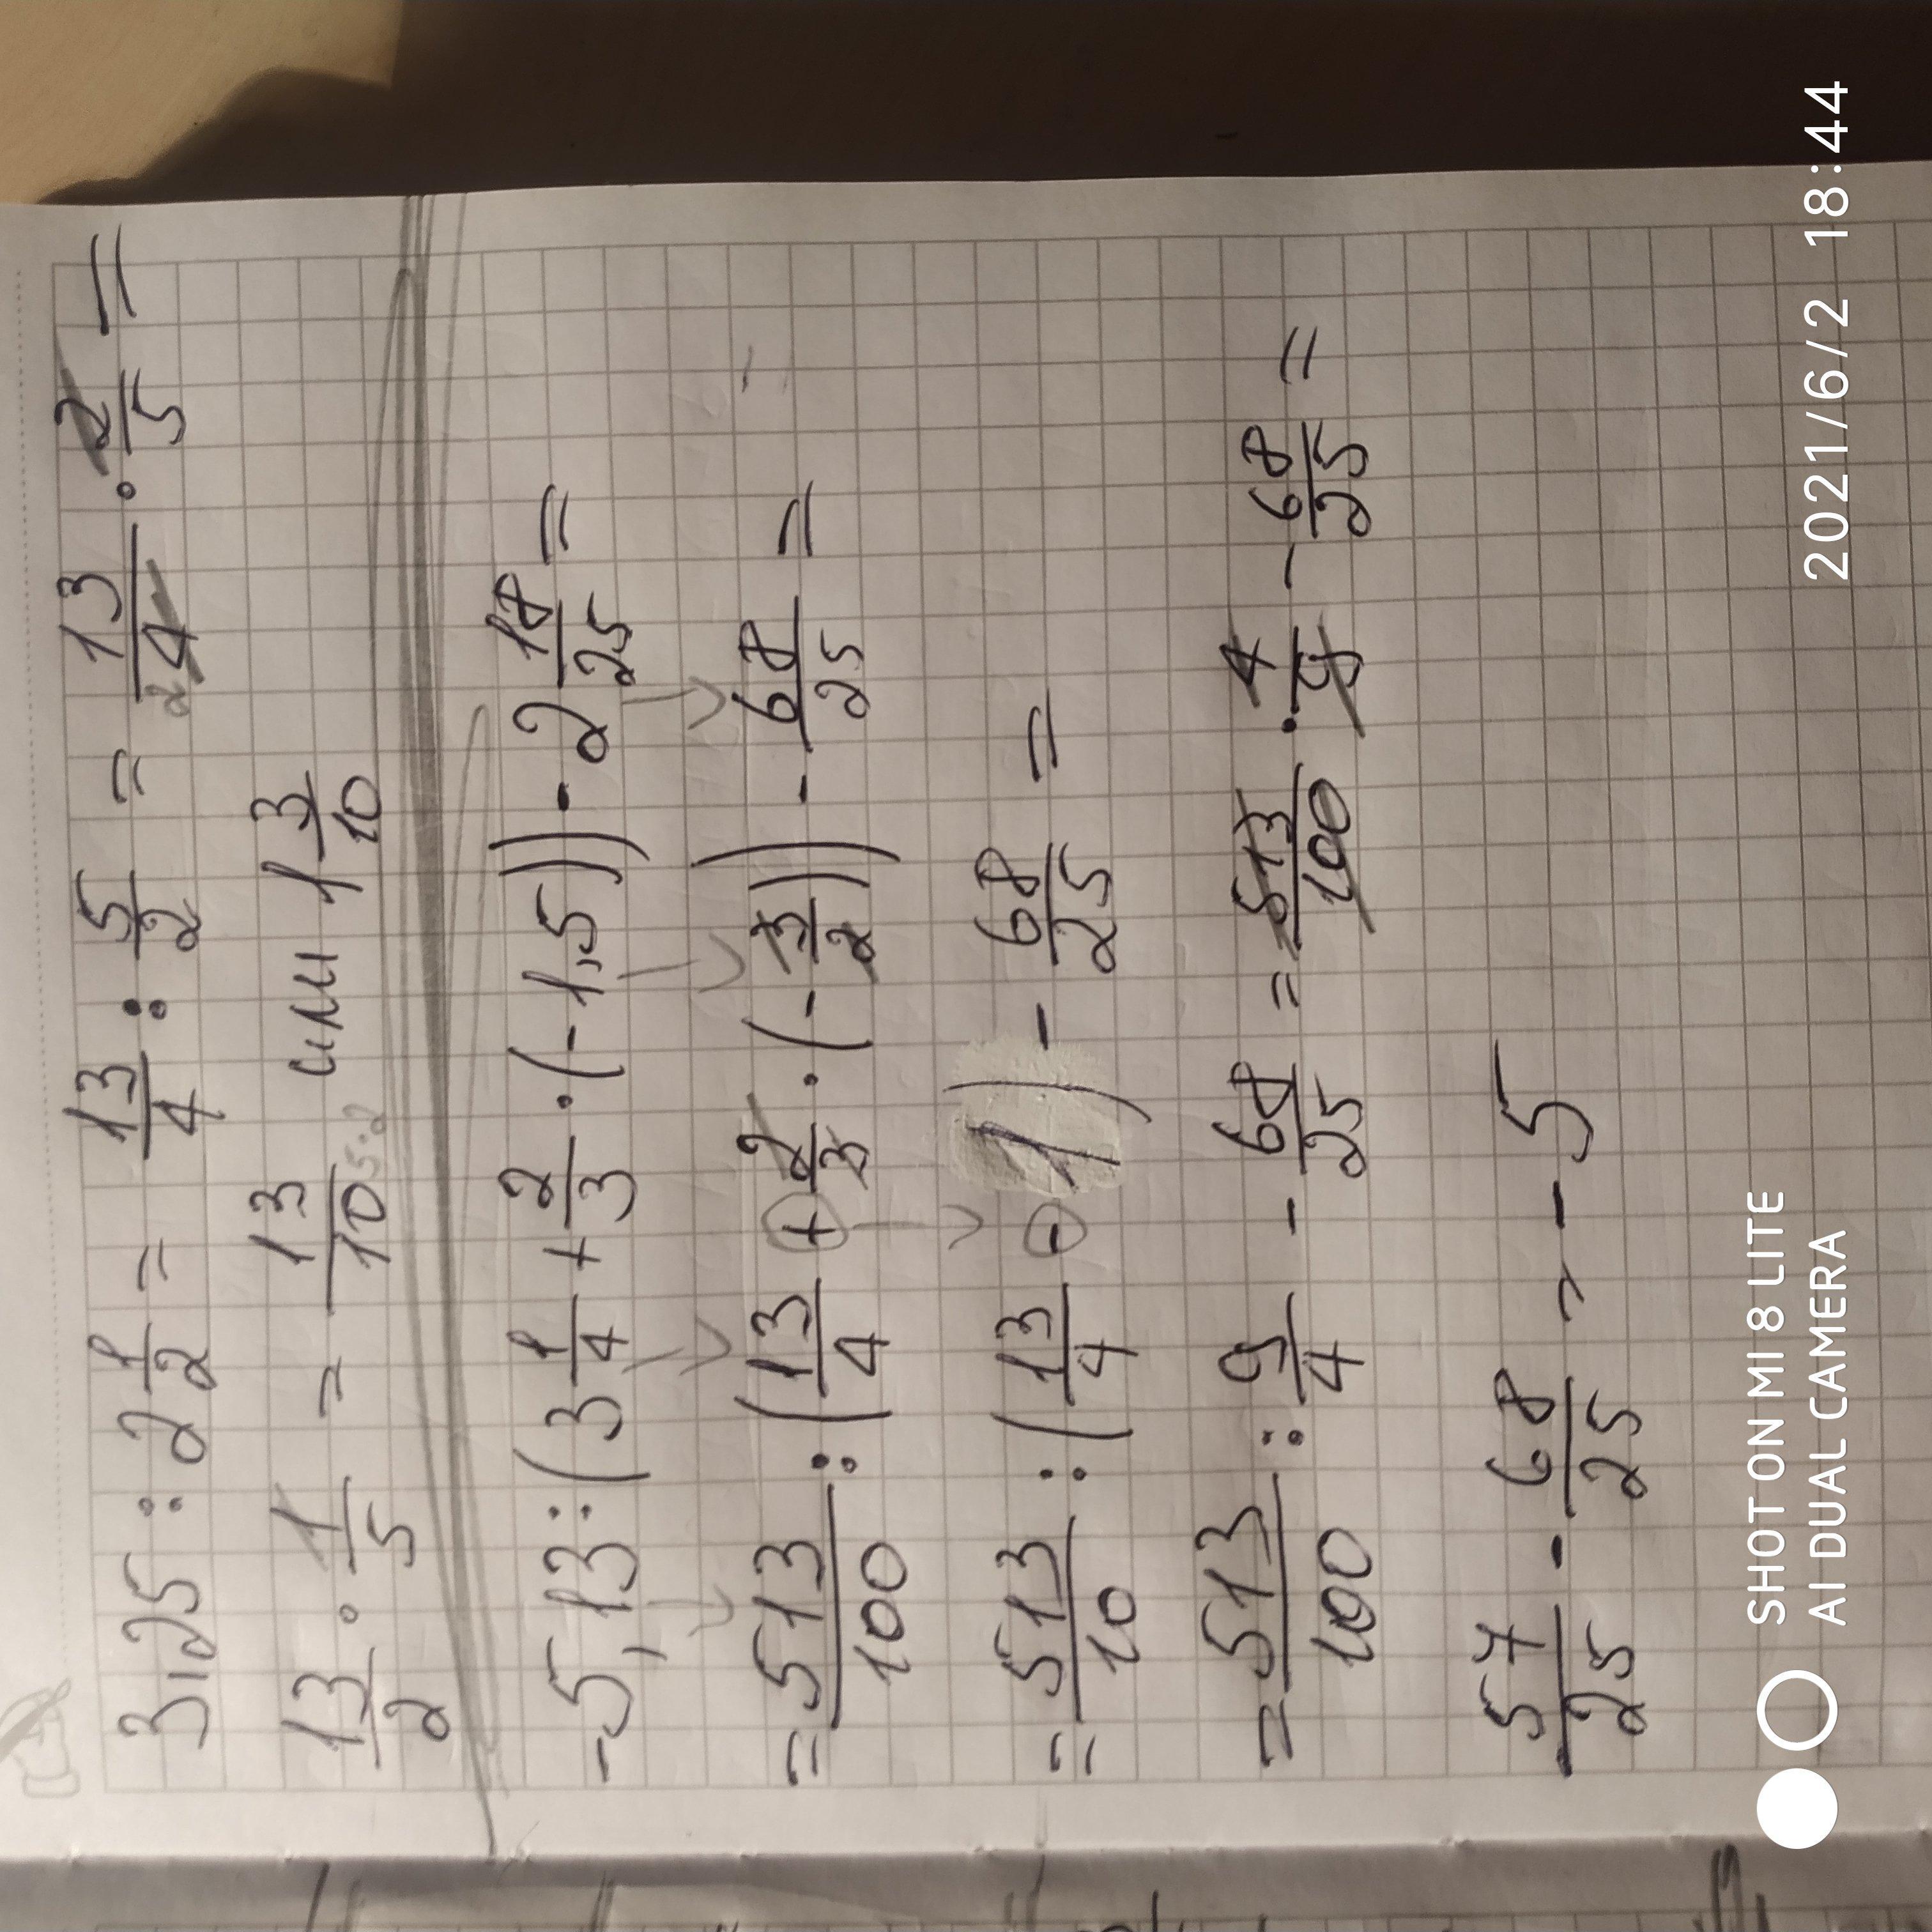 3,25 : 2 1/2 = 13/4 : 5/2 = 13/4 · 2/5 =
13/2 · 1/5 = 13/10 или 1 3/10
-5,13 : (3 1/4 + 2/3 · (-1,5)) - 2 18/25 =
= 513/100 : (13/4 + 2/3 · (-3/2)) - 68/25 =
= 513/10 : (13/4 - 1) - 68/25 =
= 513/100 : 9/4 - 68/25 = 513/100 · 4/9 - 68/25 =
57/25 - 68/25 = - 5
SHOT ON MI 8 LITE
AI DUAL CAMERA
2021/6/2 18:44